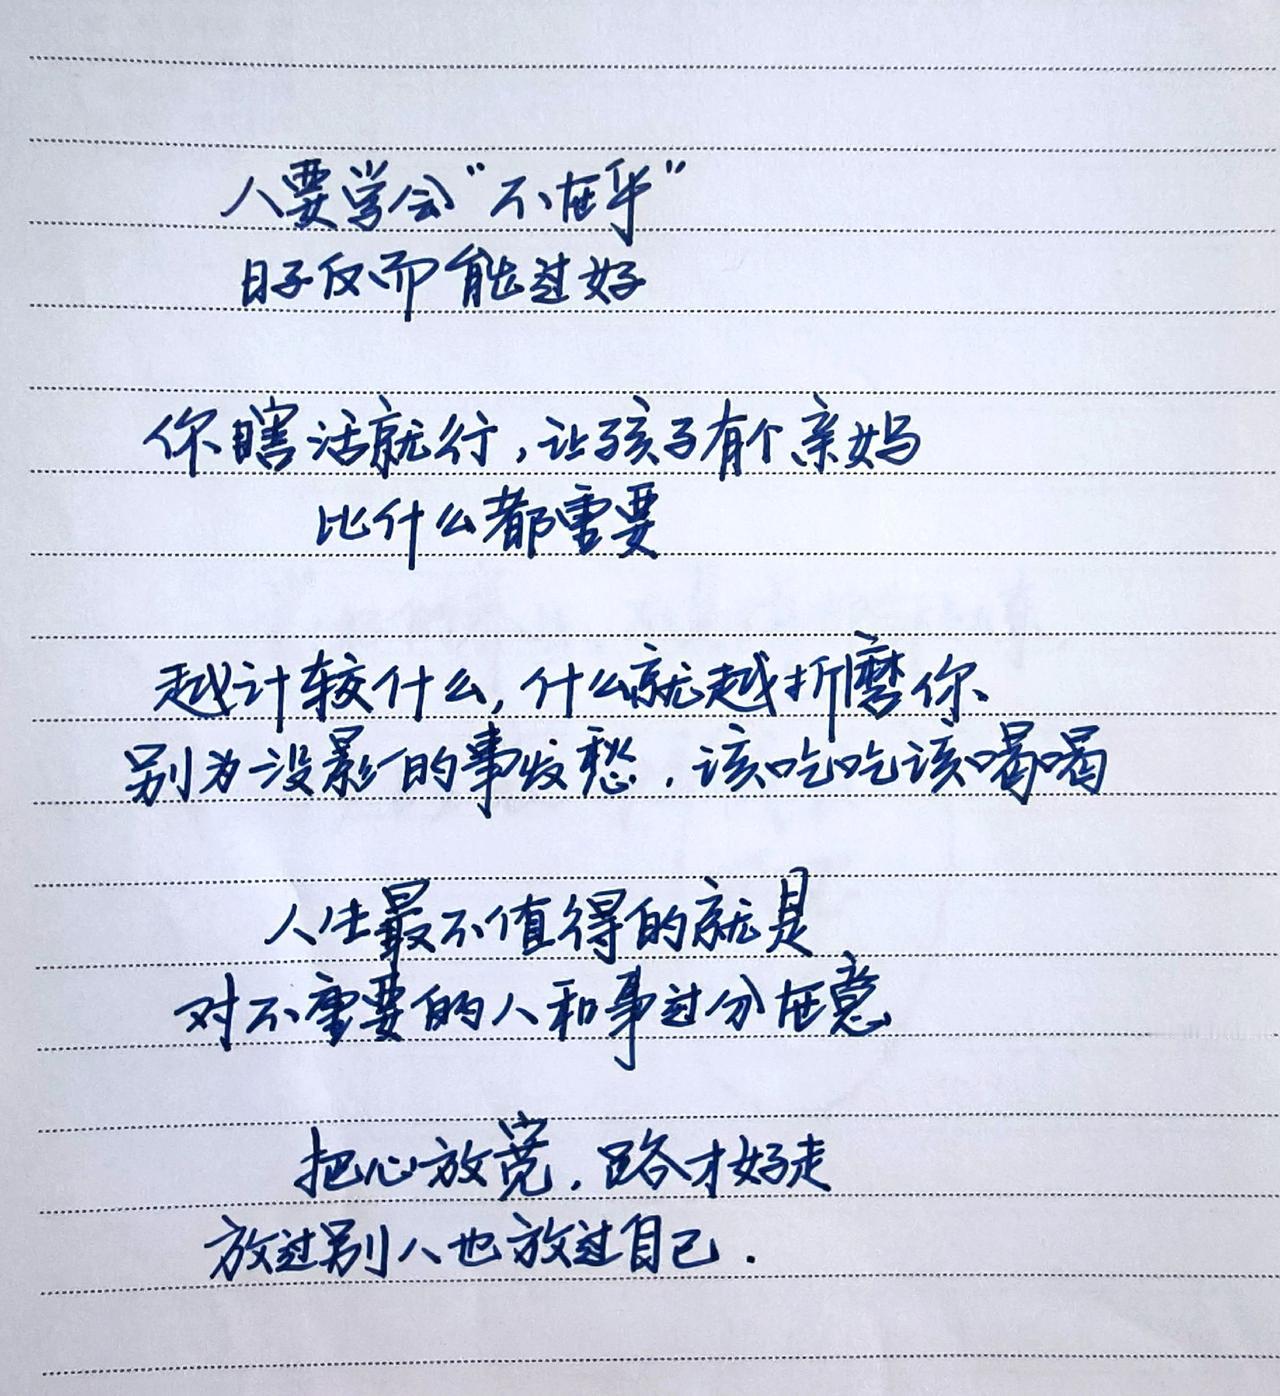 人要学会“不在乎”
日子反而能过好
你瞎活就行,让孩子有个亲妈
比什么都重要
越计较什么,什么就越折磨你、
别为没影的事发愁.该吃吃该喝喝
人生最不值得的就是
对不重要的人和事过分在意
把心放宽.路才好走
放过别人也放过自己.